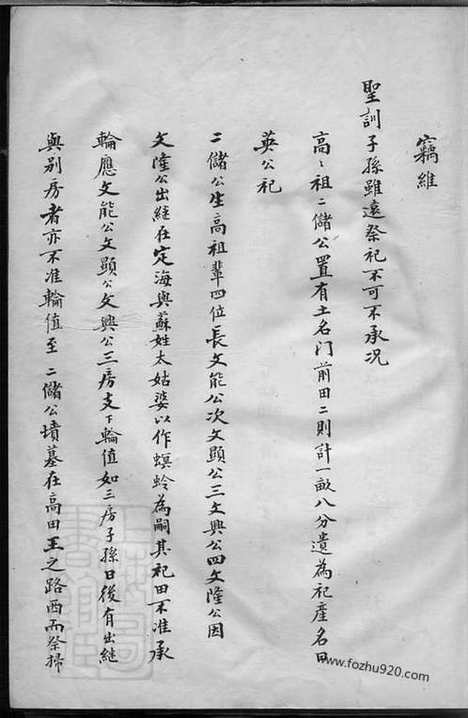 竊維
聖訓子孫雖遠祭祀不可不承况
高〻祖二儲公置有土名门前田二則計一畝八分遺為祀產名曰
英公祀
二儲公生高祖輩四位長文能公次文顯公三文興公四文隆公因
文隆公出継在定海與蘇姓太姑婆以作螟蛉為嗣其祀田不准承
輪應文能公文顯公文興公三房支下輪值如三房子孫日後有出継
與别房者亦不准輪值至二儲公墳墓在高田王之路西而祭掃
www.fozhu920.com